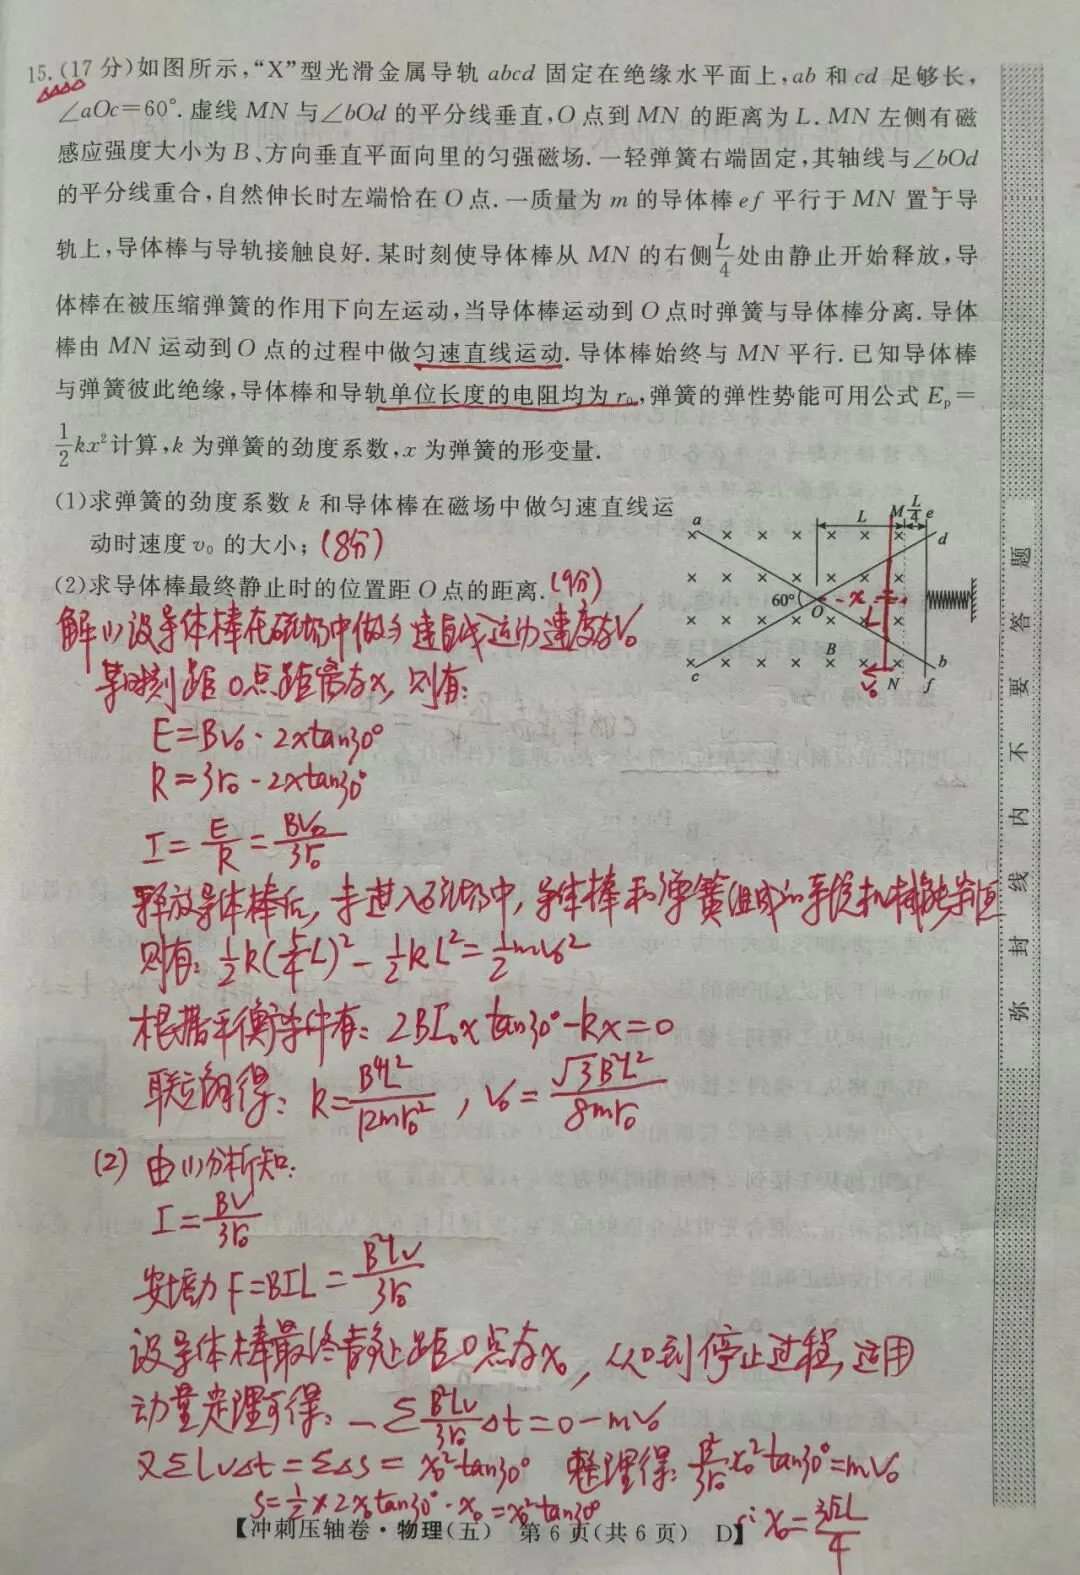 15.(17分)如图所示,“X”型光滑金属导轨 abcd 固定在绝缘水平面上,ab 和 cd 足够长,
∠aOc=60°.虚线 MN 与∠bOd 的平分线垂直,O 点到 MN 的距离为 L.MN 左侧有磁
感应强度大小为 B、方向垂直平面向里的匀强磁场.一轻弹簧右端固定,其轴线与∠bOd
的平分线重合,自然伸长时左端恰在 O 点.一质量为 m 的导体棒 ef 平行于 MN 置于导
轨上,导体棒与导轨接触良好.某时刻使导体棒从 MN 的右侧 L/4 处由静止开始释放,导
体棒在被压缩弹簧的作用下向左运动,当导体棒运动到 O 点时弹簧与导体棒分离.导体
棒由 MN 运动到 O 点的过程中做匀速直线运动.导体棒始终与 MN 平行.已知导体棒
与弹簧彼此绝缘,导体棒和导轨单位长度的电阻均为 r₀,弹簧的弹性势能可用公式 Eₚ=
1/2 kx² 计算,k 为弹簧的劲度系数,x 为弹簧的形变量.
(1)求弹簧的劲度系数 k 和导体棒在磁场中做匀速直线运
动时速度 v₀ 的大小;(8分)
(2)求导体棒最终静止时的位置距 O 点的距离.(9分)
a L M L/4 e
d
60° O x L
B
c v₀ N f b
解(1)设导体棒在磁场中做匀速直线运动速度为V₀
某时刻距O点距离为x,则有:
E=BV₀·2xtan30°
R=3r₀·2xtan30°
I=E/R=BV₀/3r₀
释放导体棒后,未进入磁场中,导体棒和弹簧组成的系统机械能守恒
则有:1/2 k(5/4 L)²-1/2 kL²=1/2 mv₀²
根据平衡条件有:2BI₀x tan30°-kx=0
联立解得:k=B⁴L²/12mr₀², V₀=√3B²L²/8mr₀
(2)由(1)分析知:
I=BV/3r₀
安培力F=BIL=B²Lv/3r₀
设导体棒最终静止距O点为x₀,从O到停止过程,运用
动量定理可得:-Σ B²Lv/3r₀ Δt=0-mV₀
又ΣLvΔt=ΣΔs=x₀²tan30° 整理得:B²/3r₀ x₀²tan30°=mV₀
S=1/2×2x₀tan30°·x₀=x₀²tan30°
∴x₀=3√2L/4
【冲刺压轴卷·物理(五) 第6页(共6页) D】
弥 封 线 内 不 要 答 题